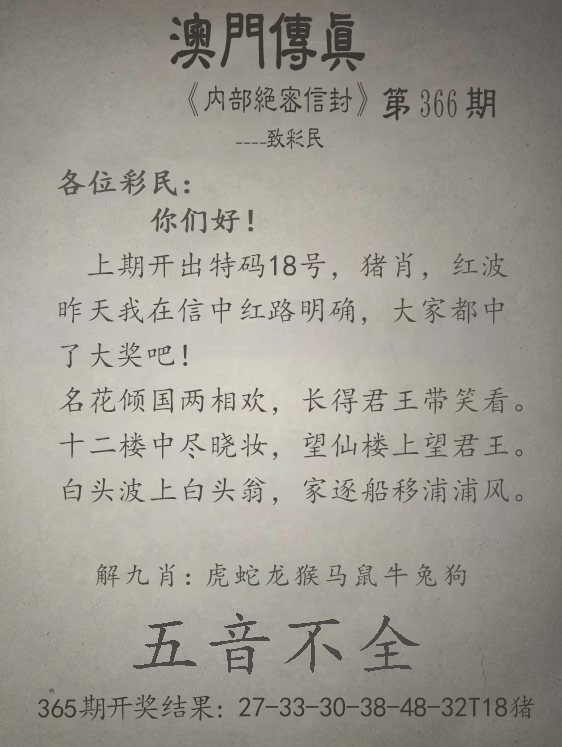 澳門傳眞
《内部絕密信封》第366期
----致彩民
各位彩民：
你们好！
上期开出特码18号，猪肖，红波
昨天我在信中红路明确，大家都中
了大奖吧！
名花倾国两相欢，长得君王带笑看。
十二楼中尽晓妆，望仙楼上望君王。
白头波上白头翁，家逐船移浦浦风。
解九肖：虎蛇龙猴马鼠牛兔狗
五音不全
365期开奖结果：27-33-30-38-48-32T18猪